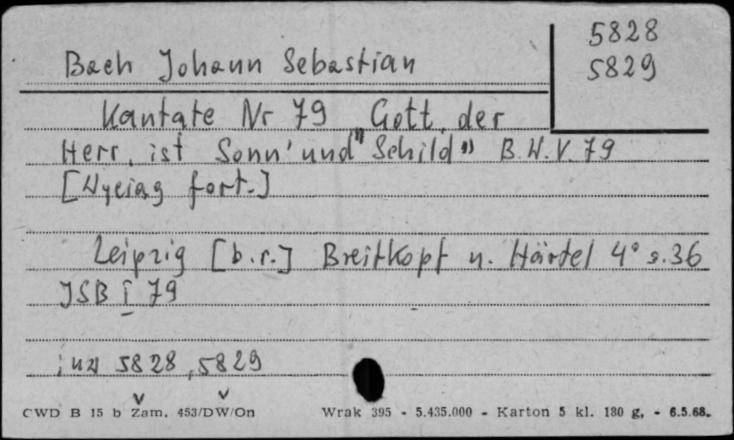 5828
5829
Bach Johann Sebastian
Kantate Nr 79 Gott, der
Herr, ist Sonn' und "Schild" B.W.V. 79
[Wyciąg fort.]
Leipzig [b.r.] Breitkopf u. Härtel 4° s. 36
JSB I 79
inw 5828, 5829
CWD B 15 b Zam. 453/DW/On Wrak 395 - 5.435.000 - Karton 5 kl. 180 g, - 6.5.68.